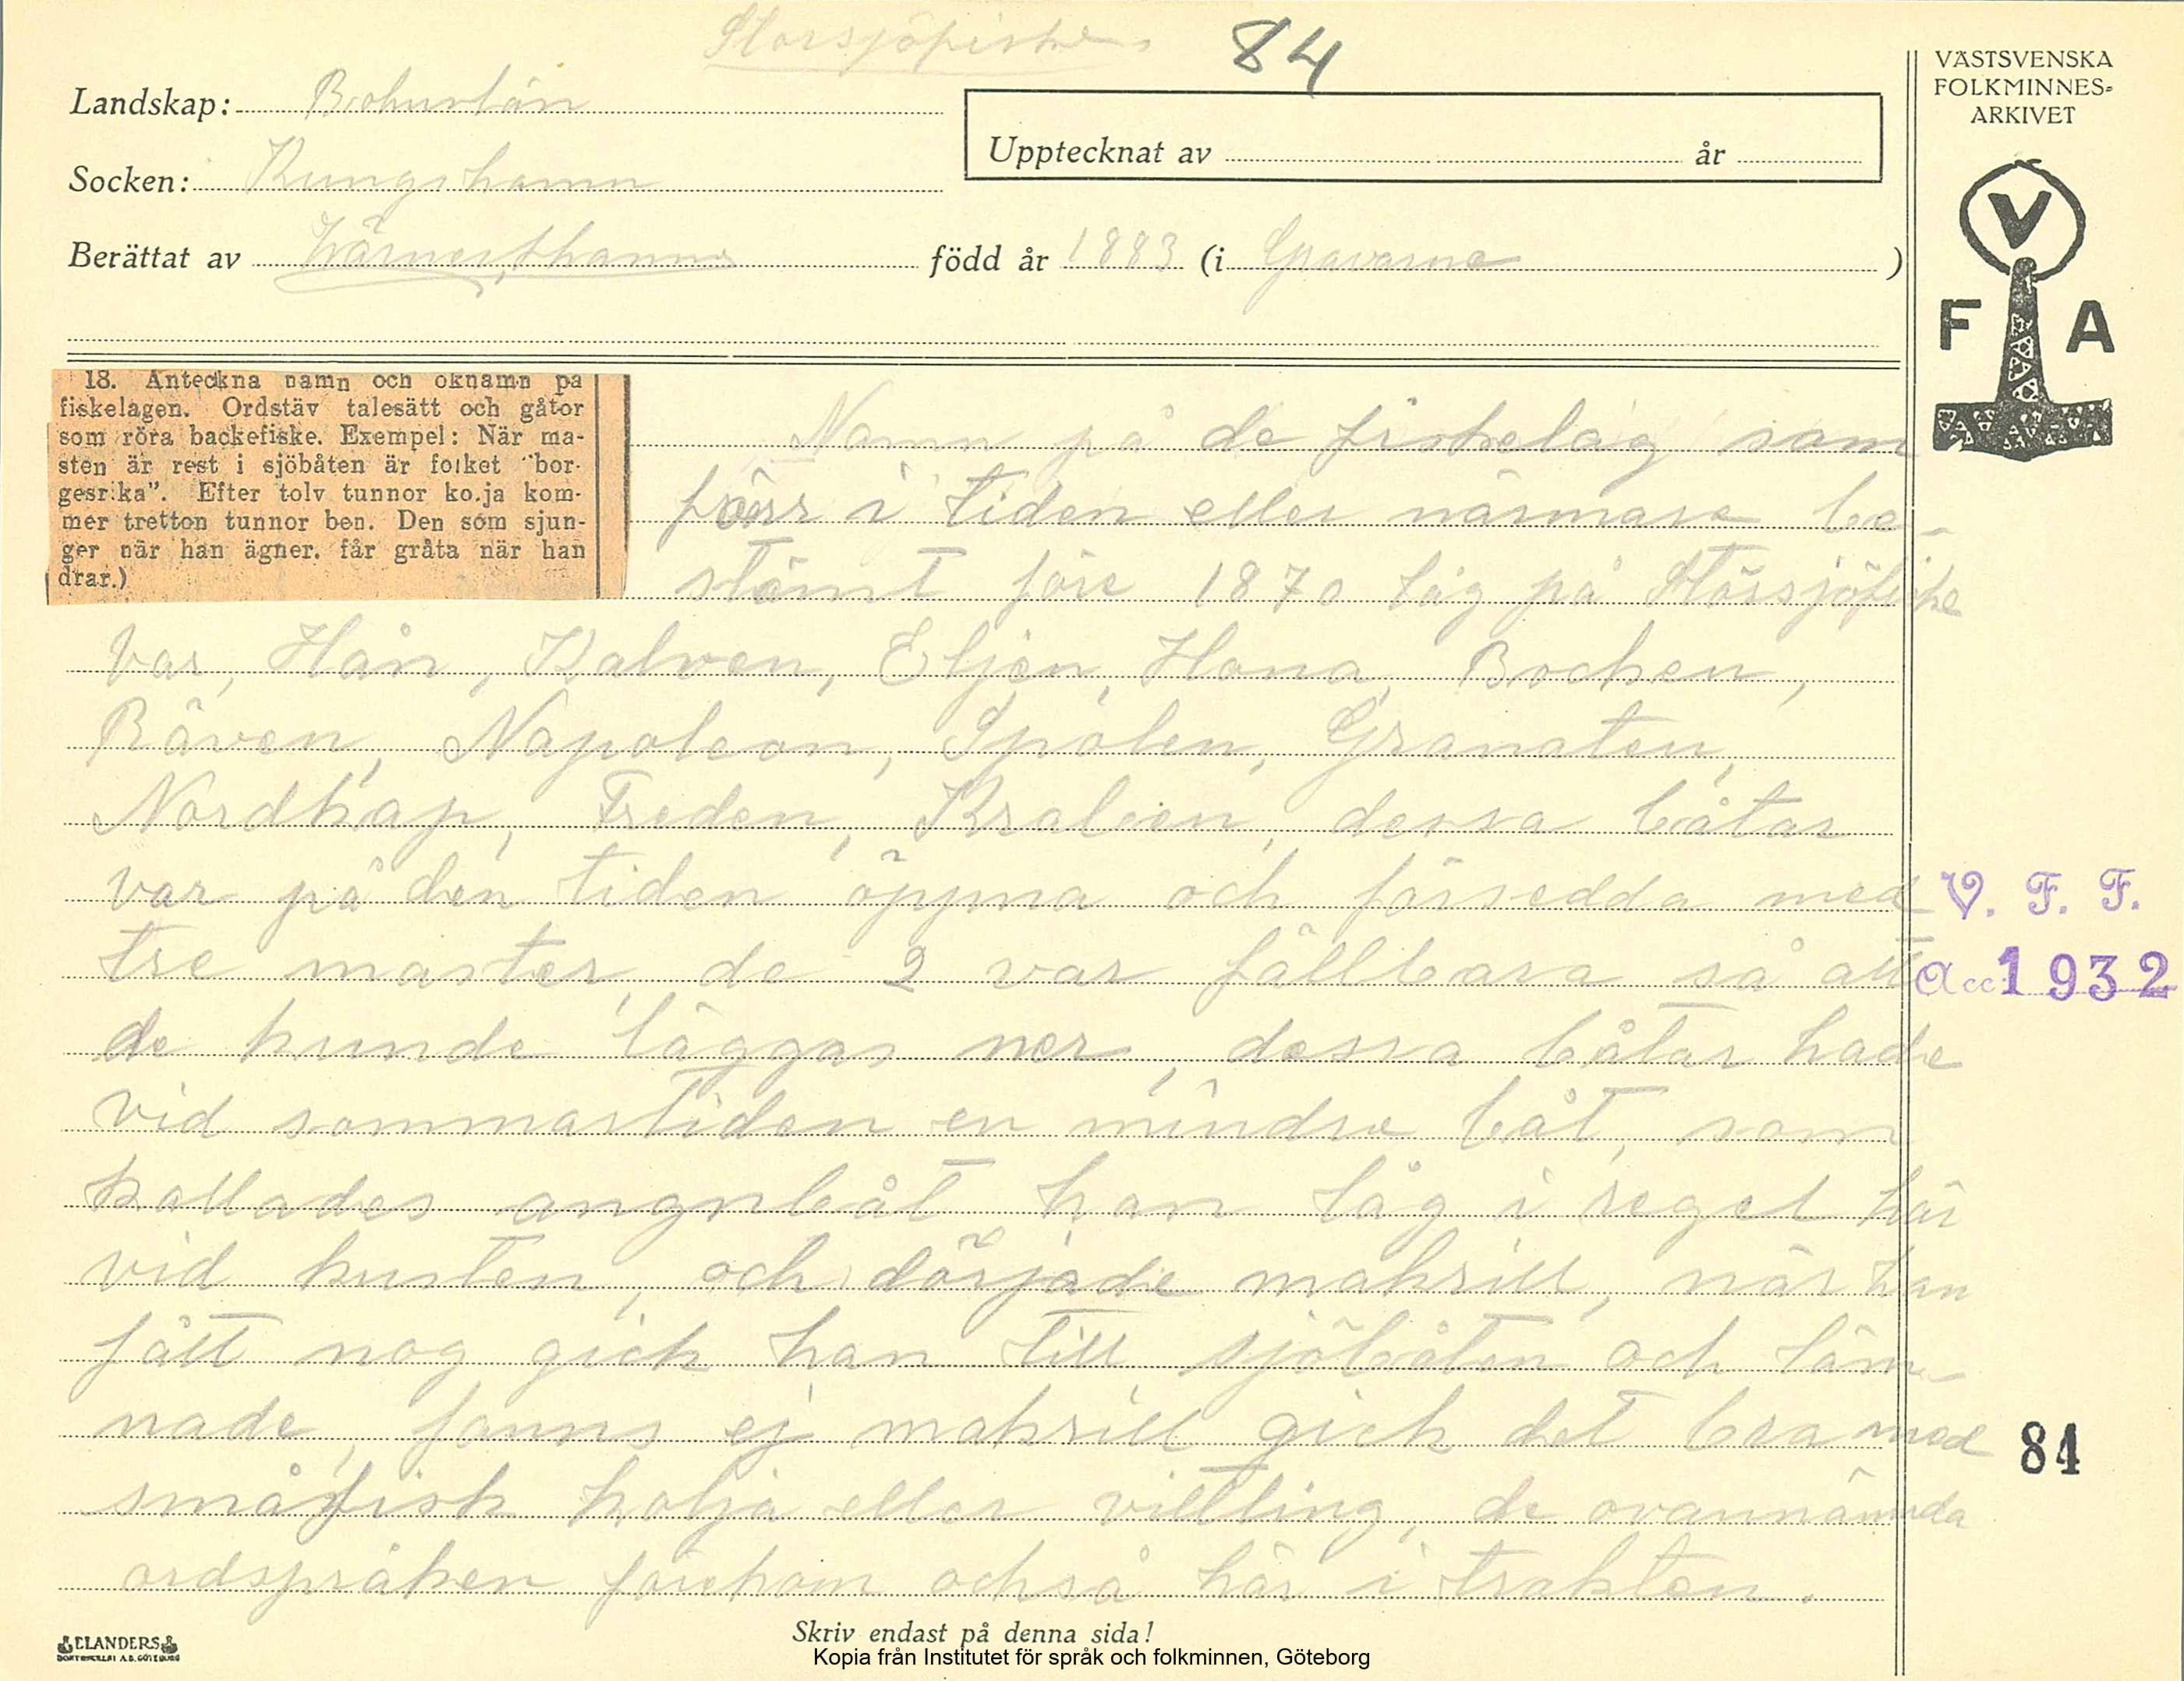 Storsjöfiske. 84
VÄSTSVENSKA
FOLKMINNES-
ARKIVET
Landskap: Bohuslän
Upptecknat av år
Socken: Kungshamn
Berättat av född år 1883 (i Gravarne )
V
F A
18. Anteckna namn och öknamn på
fiskelagen. Ordstäv talesätt och gåtor
som röra backefiske. Exempel: När ma-
sten är rest i sjöbåten är folket "bor-
gesrika". Efter tolv tunnor kolja kom-
mer tretton tunnor ben. Den som sjun-
ger när han ägner. får gråta när han
drar.)
Namn på de fiskelag som
förr i tiden eller närmare be-
stämt före 1870 låg på Storsjöfiske
var, Hån, Kalven, Eljen, Hona, Bocken,
Räven, Napoleon, Spolen, Granaten,
Nordkap, Freden, dessa båtar
var på den tiden öppna och försedda med
tre master, de 2 var fällbara så att
de kunde läggas ner, dessa båtar hade
vid sommartiden en mindre båt, som
kallades angnbåt han låg i regel här
vid kusten, och dörjade makrill, när han
fått nog gick han till sjöbåten och läm-
nade, fanns ej makrill gick det bra med
småfisk kolja eller vittling, de ovannämnda
ordspråken förekom också här i trakten.
V. F. F.
Acc 1932
84
ELANDERS
BOKTRYCKERI A.B. GÖTEBORG
Skriv endast på denna sida!
Kopia från Institutet för språk och folkminnen, Göteborg